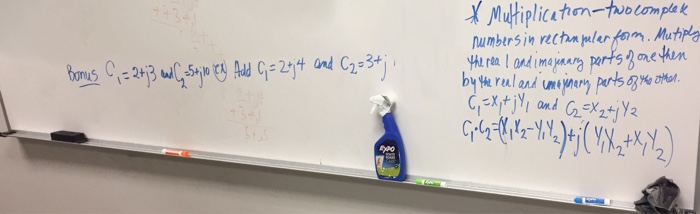 Bonus C₁=2+j3 and C₂=5+j10 (ex) Add C₁=2+j4 and C₂=3+j
* Multiplication - two complex
numbers in rectangular form. Mutiply
the real and imaginary parts of one then
by the real and imaginary parts of the other.
C₁=X₁+jY₁ and C₂=X₂+jY₂
C₁·C₂=(X₁X₂-Y₁Y₂)+j(Y₁X₂+X₁Y₂)
EXPO